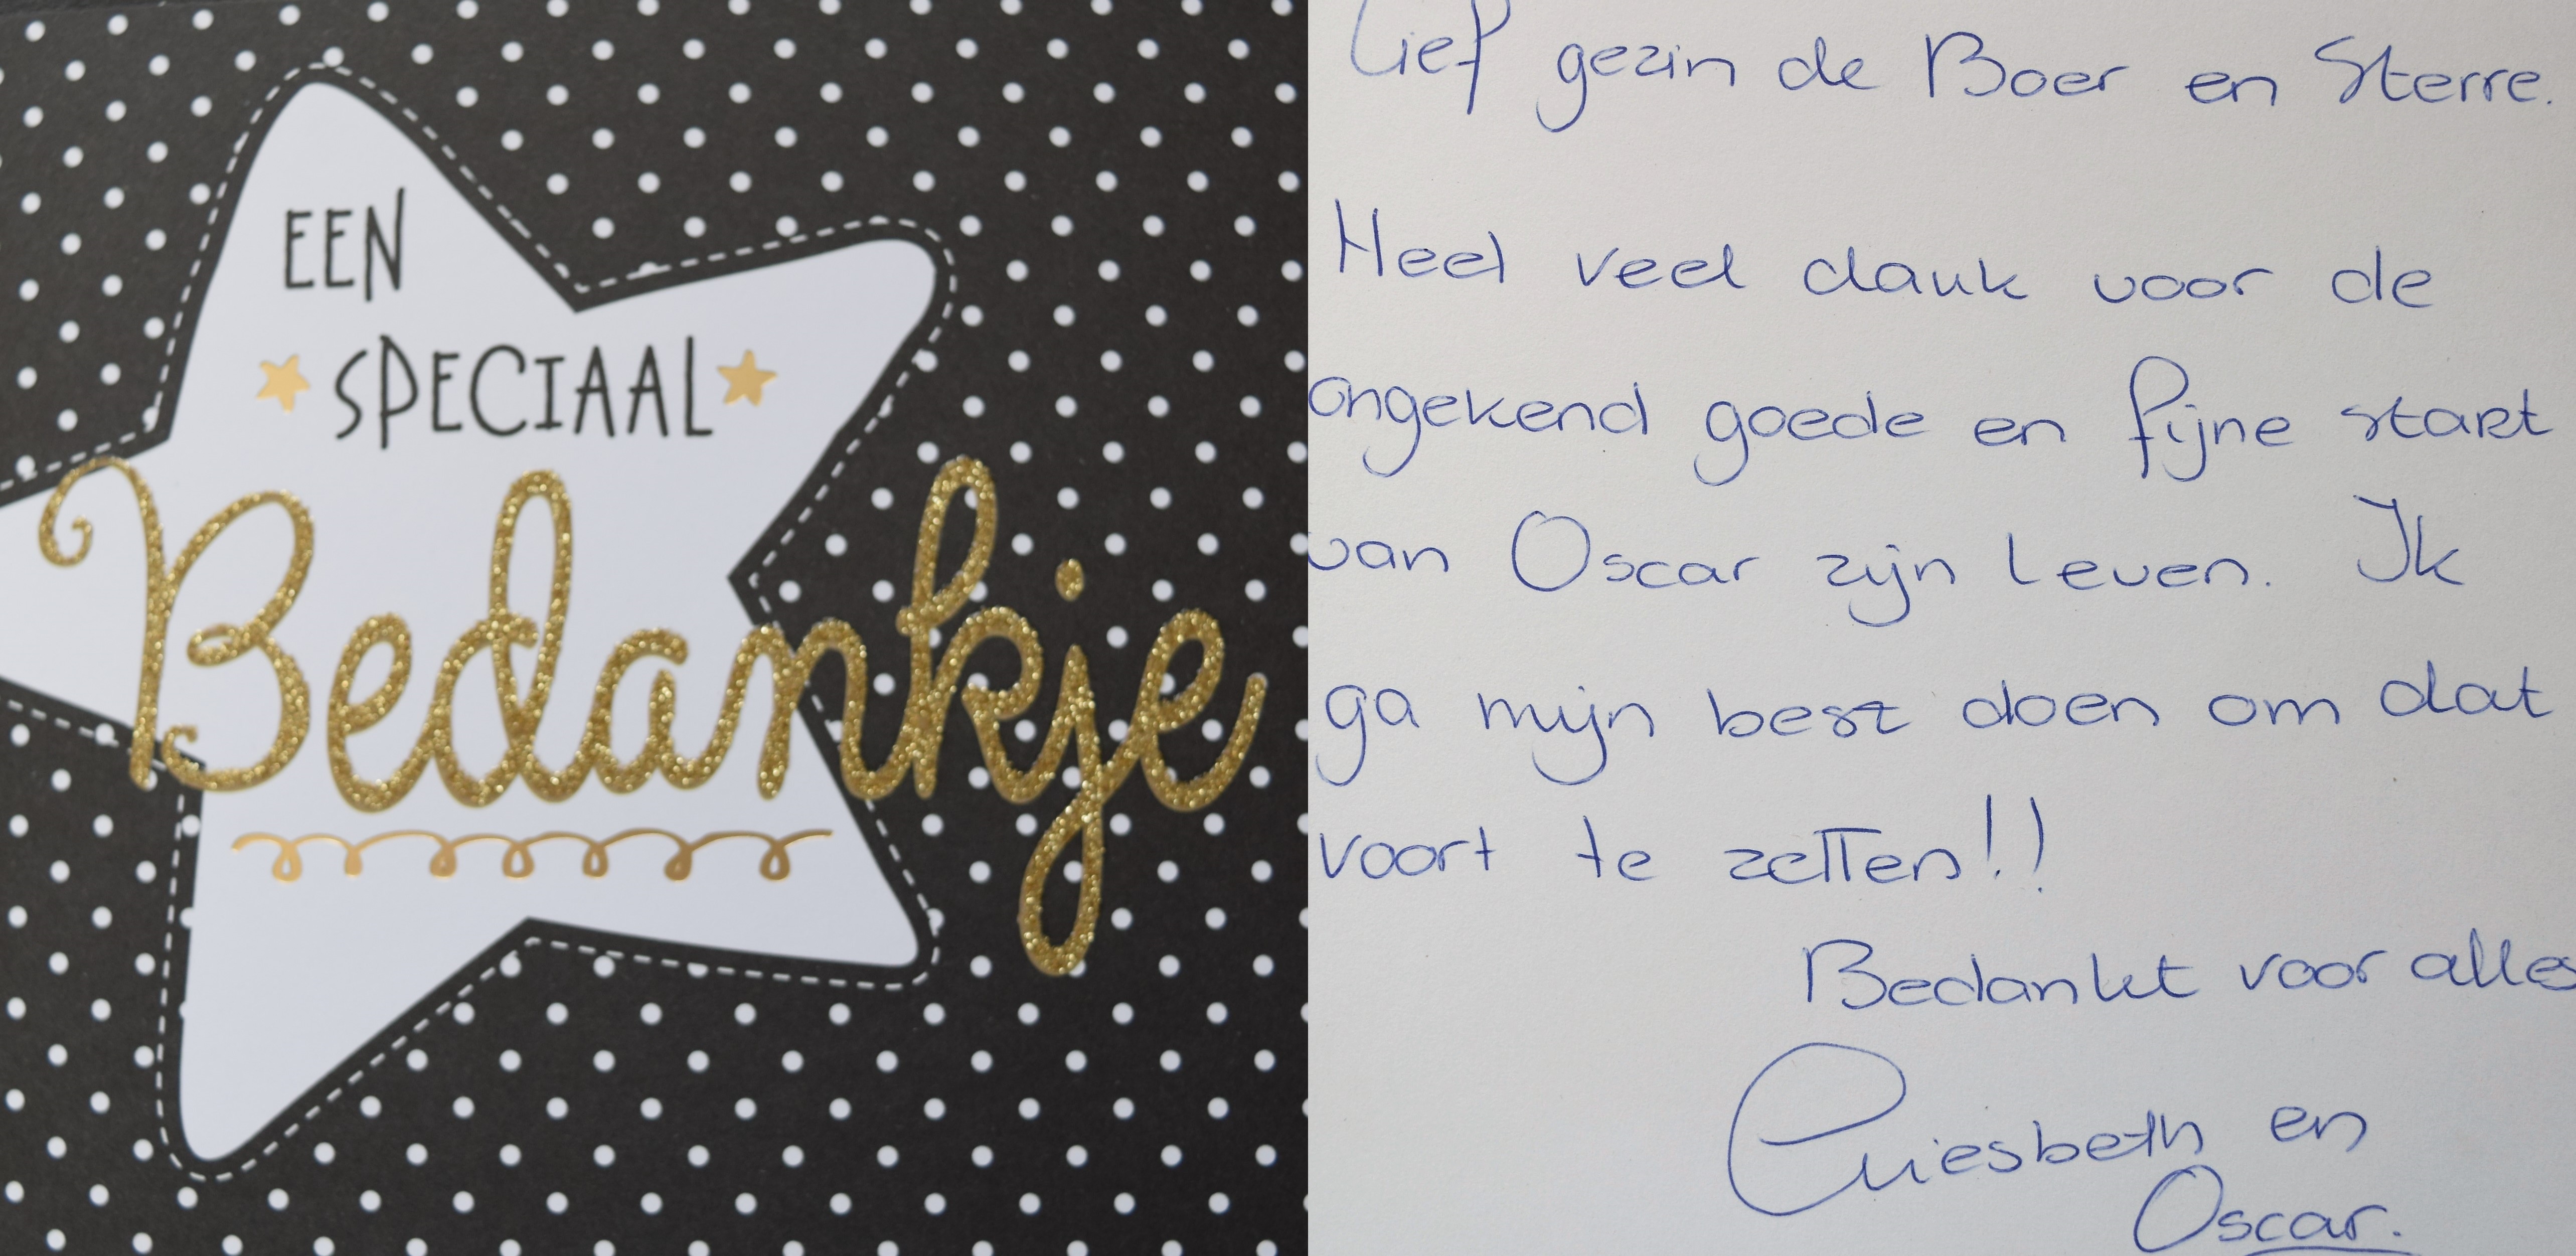 EEN
SPECIAAL
Bedankje
Lief gezin de Boer en Sterre.
Heel veel dank voor de
ongekend goede en fijne start
van Oscar zijn leven. Ik
ga mijn best doen om dat
voort te zetten!!
Bedankt voor alles
en
Oscar.